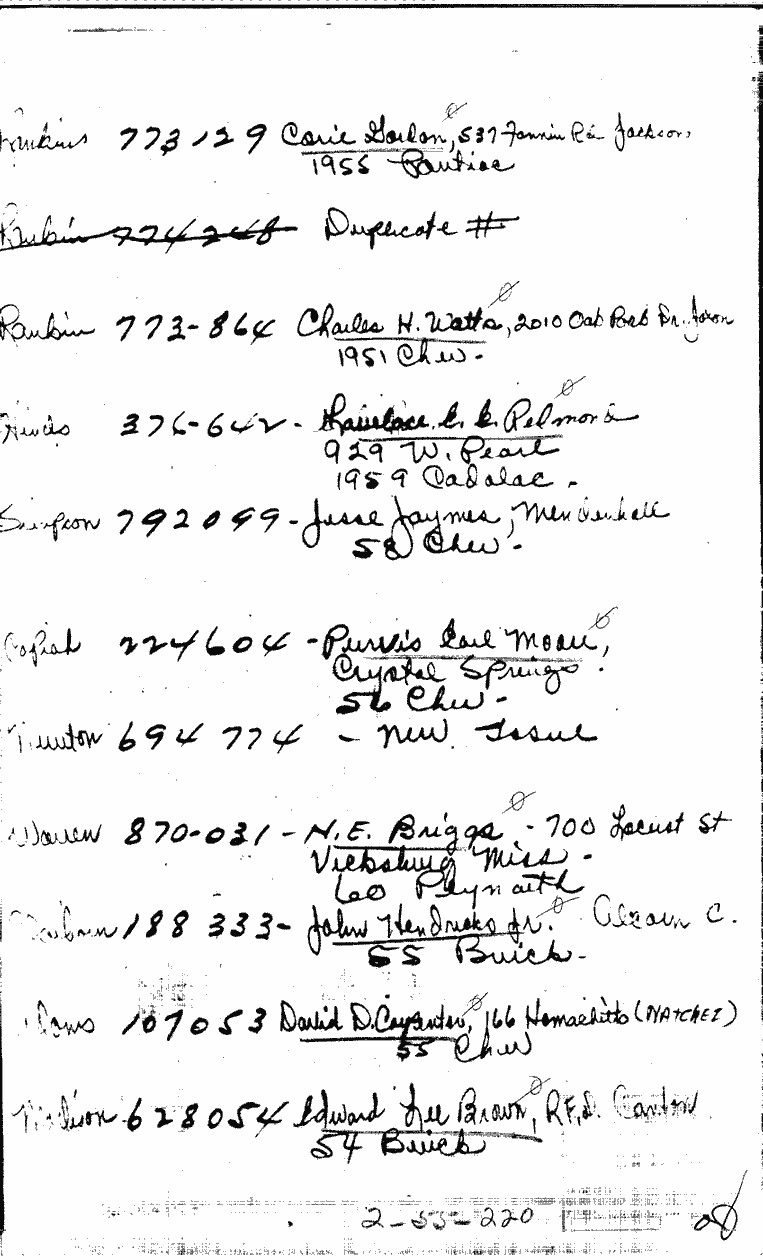 Rankins 773129 Corie Gordon, 537 Fannin Rd Jackson
1955 Pontiac
Rankin 774248 Duplicate #
Rankin 773-864 Charles H. Watts, 2010 Oak Park Dr. Jxson
1951 Chev.
Hinds 376-642- Redmond
929 W. Pearl
1959 Cadalac.
Simpson 792099- Jesse Jaymes, Mendenhall
58 Chev.
Copiah 224604 - Purvis Earl Moore,
Crystal Springs.
56 Chev-
Newton 694 774 - New Issue
Warren 870-031 - N.E. Briggs - 700 Locust St
Vicksburg Miss -
60 Plymouth
188 333- John Hendricks Jr. Alcorn C.
55 Buick-
Adams 107053 David D. Carpenter, 166 Homachitto (NATCHEZ)
55 Chev
Madison 628054 Edward Lee Brown, RF.D. Canton
54 Buick
2-55-220